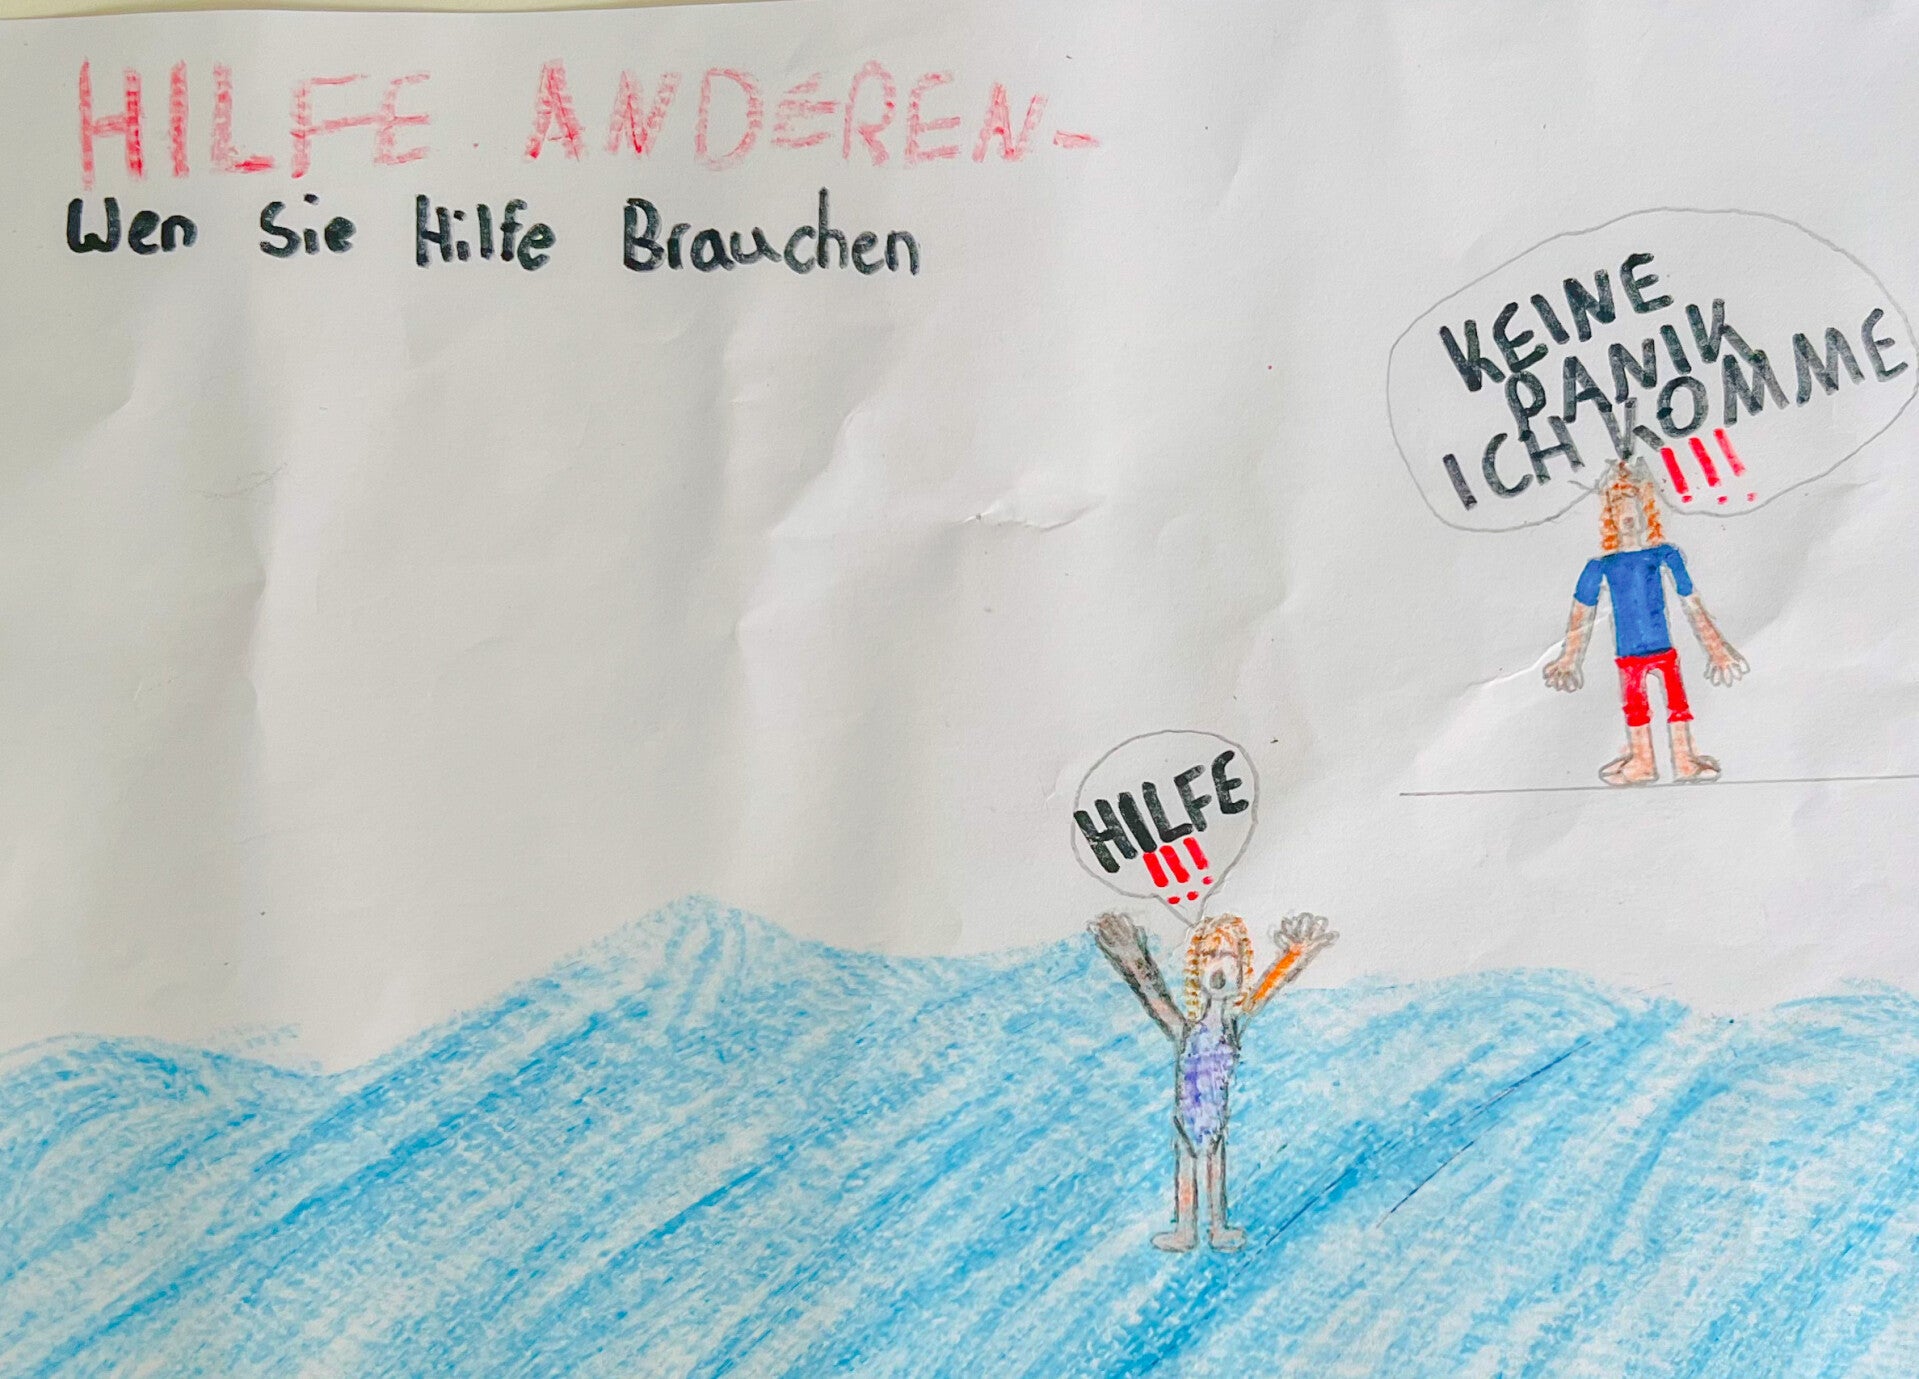 HILFE ANDEREN-
Wen Sie Hilfe Brauchen
KEINE
PANIK
ICH KOMME
!!!
HILFE
!!!